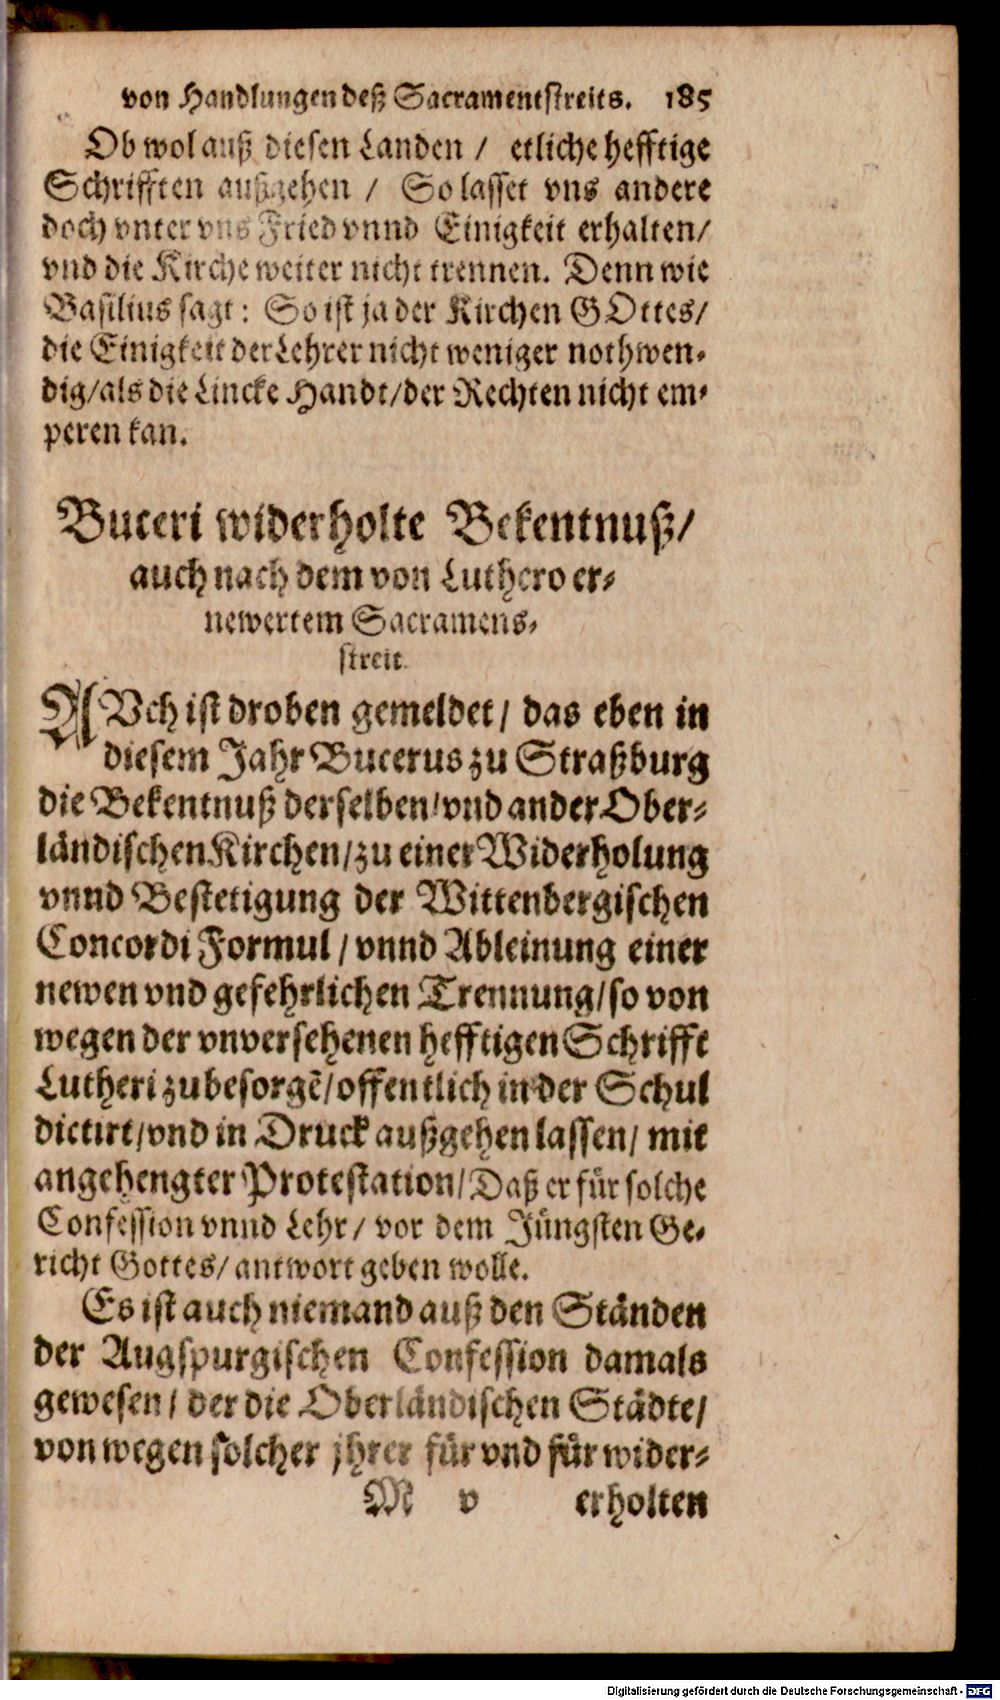 von Handlungen deß Sacramentstreits. 185
Ob wol auß diesen Landen / etliche hefftige
Schrifften außgehen / So lasset vns andere
doch vnter vns Fried vnnd Einigkeit erhalten/
vnd die Kirche weiter nicht trennen. Denn wie
Basilius sagt: So ist ja der Kirchen GOttes/
die Einigkeit der Lehrer nicht weniger nothwen-
dig/als die Lincke Handt/der Rechten nicht em-
peren kan.
Buceri widerholte Bekentnuß/
auch nach dem von Luthero er-
newertem Sacramens-
streit.
AVch ist droben gemeldet/ das eben in
diesem Jahr Bucerus zu Straßburg
die Bekentnuß derselben/vnd ander Ober-
ländischen Kirchen/zu einer Widerholung
vnnd Bestetigung der Wittenbergischen
Concordi Formul / vnnd Ableinung einer
newen vnd gefehrlichen Trennung/so von
wegen der vnversehenen hefftigen Schrifft
Lutheri zubesorgẽ/offentlich in der Schul
dictirt/vnd in Druck außgehen lassen/ mit
angehengter Protestation/Daß er für solche
Confession vnnd Lehr/ vor dem Jüngsten Ge-
richt Gottes/ antwort geben wolle.
Es ist auch niemand auß den Ständen
der Augspurgischen Confession damals
gewesen/ der die Oberländischen Städte/
von wegen solcher jhrer für vnd für wider-
M v erholten
Digitalisierung gefördert durch die Deutsche Forschungsgemeinschaft - DFG